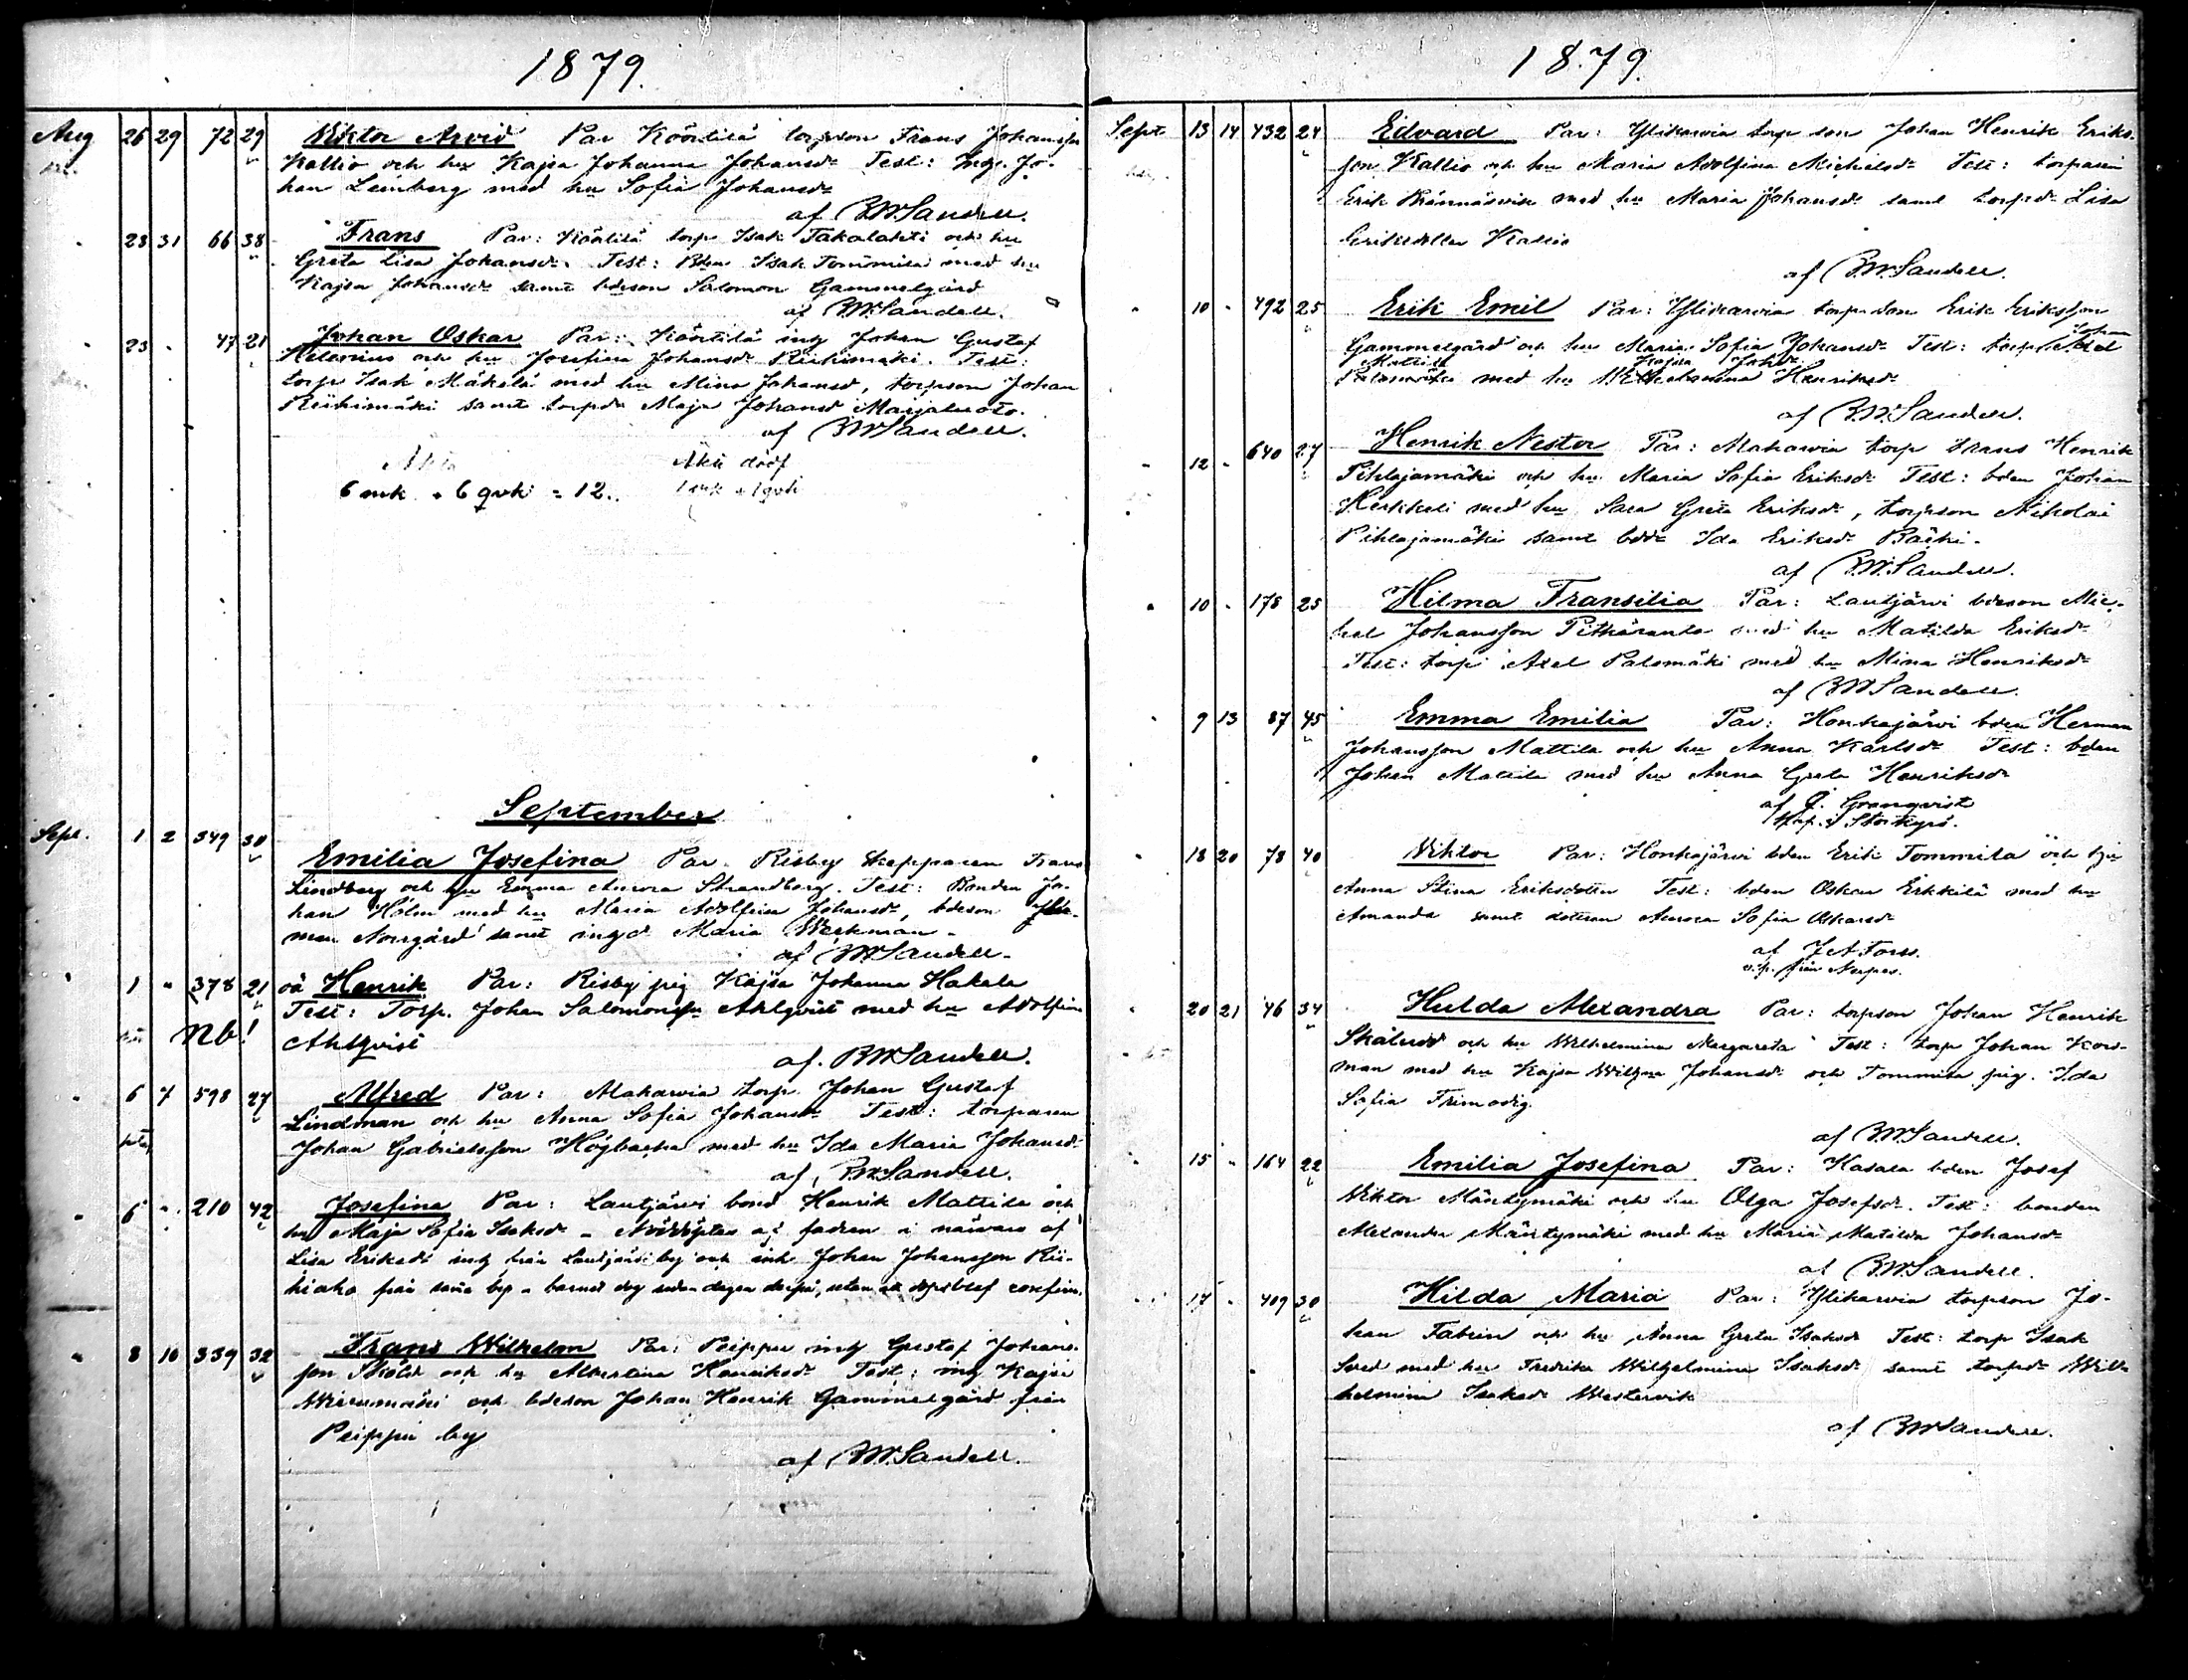 1879.
Aug 26 29 72 29 Viktor Arvid Par Köörtilä torpson Frans Johansson
Kallio och hu Kajsa Johanna Johansdr Test: Ing. Jo-
han Leinberg med hu Sofia Johansdr
af B.W.Sandell.
" 28 31 66 38 Frans Par: Köörtilä torp Isak Takalahti och hu
Greta Lisa Johansdr. Test: Bden Isak Tommila med hu
Kajsa Johansdr samt bdeson Salomon Gammelgård
af B.W.Sandell.
" 23 - 47 21 Johan Oskar Par: Köörtilä ing Johan Gustaf
Helenius och hu Josefina Johansdr Riihimäki. Test:
torp Isak Mäkelä med hu Mina Johansd, torpson Johan
Riihimäki samt torpdr Maja Johansd Marjaluoto.
af B.W.Sandell.
6 mk + 6 qvk = 12.
September
Sept. 1 2 349 30 Emilia Josefina Par. Risby Skepparen Frans
Lindberg och hu Emma Aurora Strandberg. Test: Bonden Jo-
han Holm med hu Maria Adolfina Johansdr, bdeson
man Norrgård samt ingd Maria Werkman -
af B.W.Sandell.
" 1 " 378 21 oä Henrik Par: Risby pig Kajsa Johanna Hakala
Test: Torp. Johan Salomonsson Ahlqvist med hu Adolfina
Nb! Ahlqvist
af. B.W.Sandell.
" 6 7 598 27 Alfred Par: Alakarvia torp. Johan Gustaf
Lindman och hu Anna Sofia Johansdr Test: torparen
Johan Gabrielsson Högbacka med hu Ida Maria Johansd.
af, B.W.Sandell.
" 6 " 210 42 Josefina Par: Lautjärvi bond Henrik Mattila och
hu Maja Sofia Isaksdr - Nöddöptes af fadren i närvaro af
Lisa Eriksdr ing från Lautjärvi by och inh Johan Johansson Rii-
hiaho från samma by - barnet dog sedan dagen derpå, utan att dopet blef confirm.
" 8 10 339 32 Frans Wilhelm Par: Peippu ing Gustaf Johans-
son Sköld och hu Albertina Henriksdr Test: ing Kajsa
och bdeson Johan Henrik Gammelgård från
Peippu by
af B.W.Sandell.
1879.
Sept 13 14 432 24 Edvard Par: Ylikarvia torp son Johan Henrik Eriks-
son Kallio och hu Maria Adolfina Michelsdr Test: torparen
Erik Brännäsvik med hu Maria Johansdr samt torpdr Lisa
Eriksdotter Kallio
af B.W.Sandell.
" 10 - 492 25 Erik Emil Par: Ylikarvia torpson Erik Eriksson
Gammelgård och hu Maria Sofia Johansdr Test: torp Johan Axel
Mattila Palomäki med hu Kajsa Johdr Wilhelmina Henriksdr
af B.W.Sandell.
" 12 - 640 27 Henrik Nestor Par: Alakarvia torp Frans Henrik
Pihlajamäki och hu Maria Sofia Eriksdr Test: bden Johan
Herkkeli med hu Sara Greta Eriksdr, torpson Nikolai
Pihlajamäki samt bddr Ida Eriksdr Räiki.
af B.W.Sandell.
" 10 - 178 25 Hilma Fransilia Par: Lautjärvi bdeson Mic-
hel Johansson Pitkäranta med hu Matilda Eriksdr
Test: torp Axel Palomäki med hu Mina Henriksdr
af B.W.Sandell.
" 9 13 87 45 Emma Emilia Par: Honkajärvi bden Herman
Johansson Mattila och hu Anna Karlsdr Test: bden
Johan Mattila med hu Anna Greta Henriksdr
af J. Granqvist
kap. i Storkyrö.
" 18 20 78 40 Viktor Par: Honkajärvi bden Erik Tommila och hu
Anna Stina Eriksdotter Test: bden Oskar Erkkilä med hu
Amanda samt dottren Aurora Sofia Oskarsdr
af J A Forss.
v.p. från Nerpes.
" 20 21 46 34 Hulda Alexandra Par: torpson Johan Henrik
Skäludd och hu Wilhelmina Margareta Test: torp Johan Kors-
man med hu Kajsa Wilhma Johansdr och Tommila pig. Ida
Sofia Trimodig.
af B.W.Sandell.
" 15 " 164 22 Emilia Josefina Par: Kasala bden Josef
Viktor Mäntymäki och hu Olga Josefsdr. Test: bonden
Alexander Mäntymäki med hu Maria Matilda Johansdr
af B.W.Sandell.
" 17 - 409 30 Hilda Maria Par: Ylikarvia torpson Jo-
han Fabrin och hu Anna Greta Isaksdr Test: torp Isak
Sved med hu Fredrika Wilhelmina Isaksdr samt torpdr Wil-
helmina Isaksdr Westervik
af B.W.Sandell.